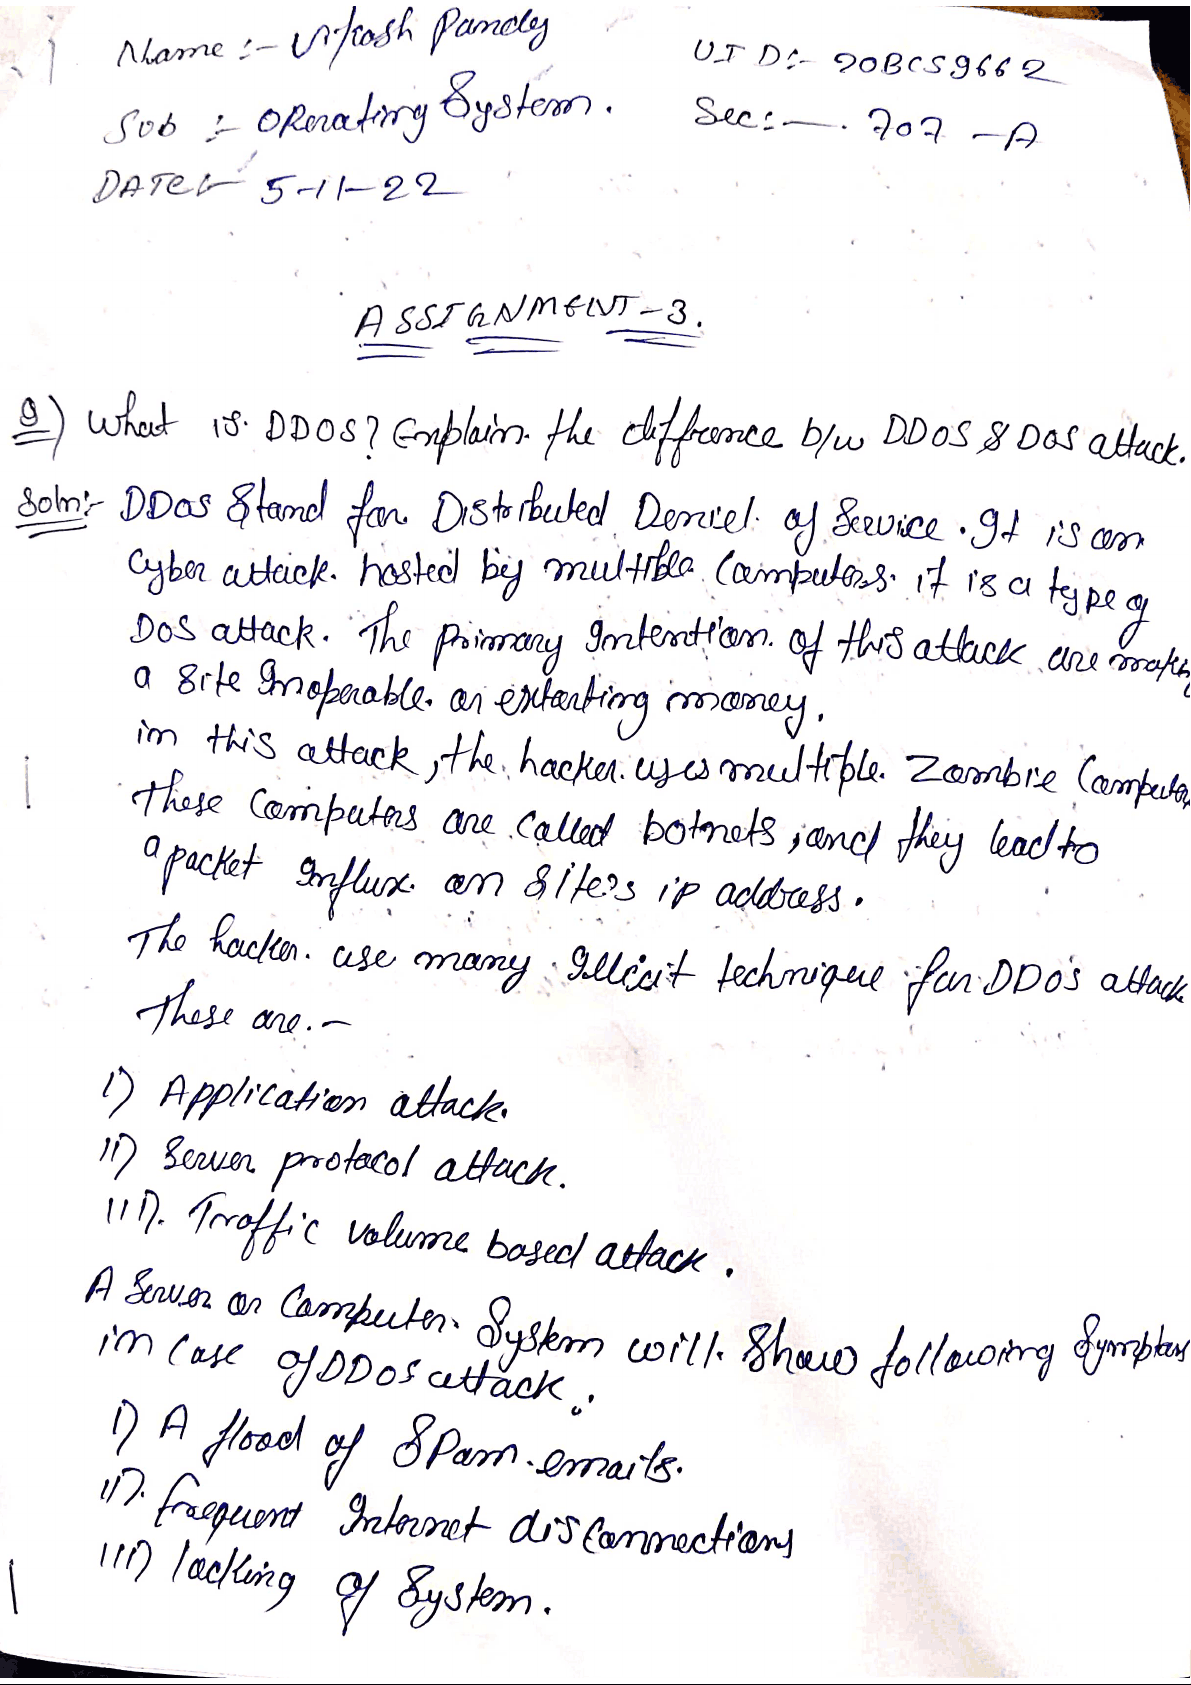 Name :- Vikash Pandey
UID:- 20BCS9662
Sub :- Operating System.
Sec:- 707 -A
DATE:- 5-11-22
ASSIGNMENT-3.
Q) What is DDOS? Explain the diffrence b/w DDOS & DOS attack.
Soln:- DDos Stand for Distributed Deniel of Service. It is an
Cyber attack hosted by multible Computers. it is a type of
DoS attack. The primary Intention of this attack are making
a site Inoperable or extorting money.
in this attack, the hacker uses multiple Zombie Computers
These Computers are Called botnets, and they lead to
a packet Influx on Site's ip address.
The hacker use many Illicit technique for DDos attack
These are.-
i) Application attack.
ii) Server protocol attack.
iii). Traffic volume based attack.
A Server or Computer System will Show following Symptoms
in Case of DDos attack:
i) A flood of Spam emails.
ii). frequent Internet disconnections
iii) lacking of System.